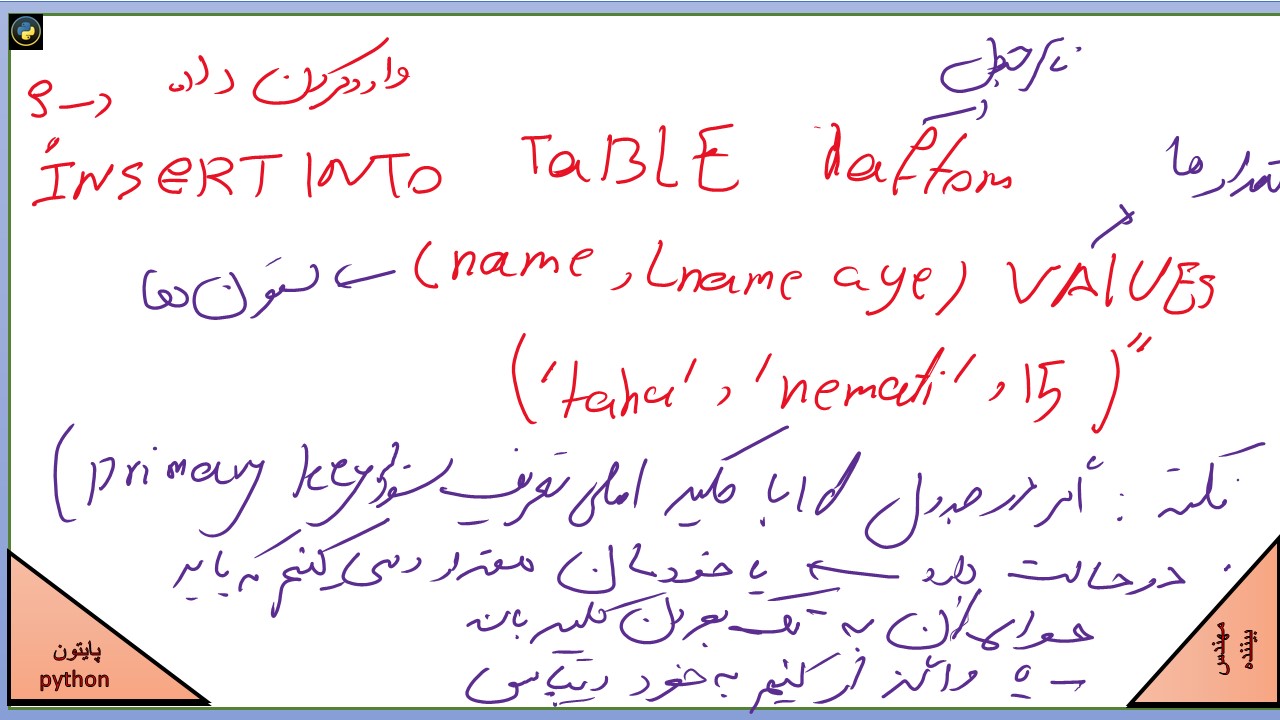 وارد کردن داده در
نام جدول
INSERT INTO TaBLE haftom
مقدارها
(name, Lname age) VALUEs
ستون ها
('taha', 'nemati', 15)"
نکته : اگر در جدول id با کلید اصلی تعریف شود (primary key
دو حالت دارد یا خودمان مقدار دهی کنیم که باید
حواسمان به تک بودن کلید باشد
واگذار کنیم به خود دیتابیس
پایتون
python
مهندس
بیننده